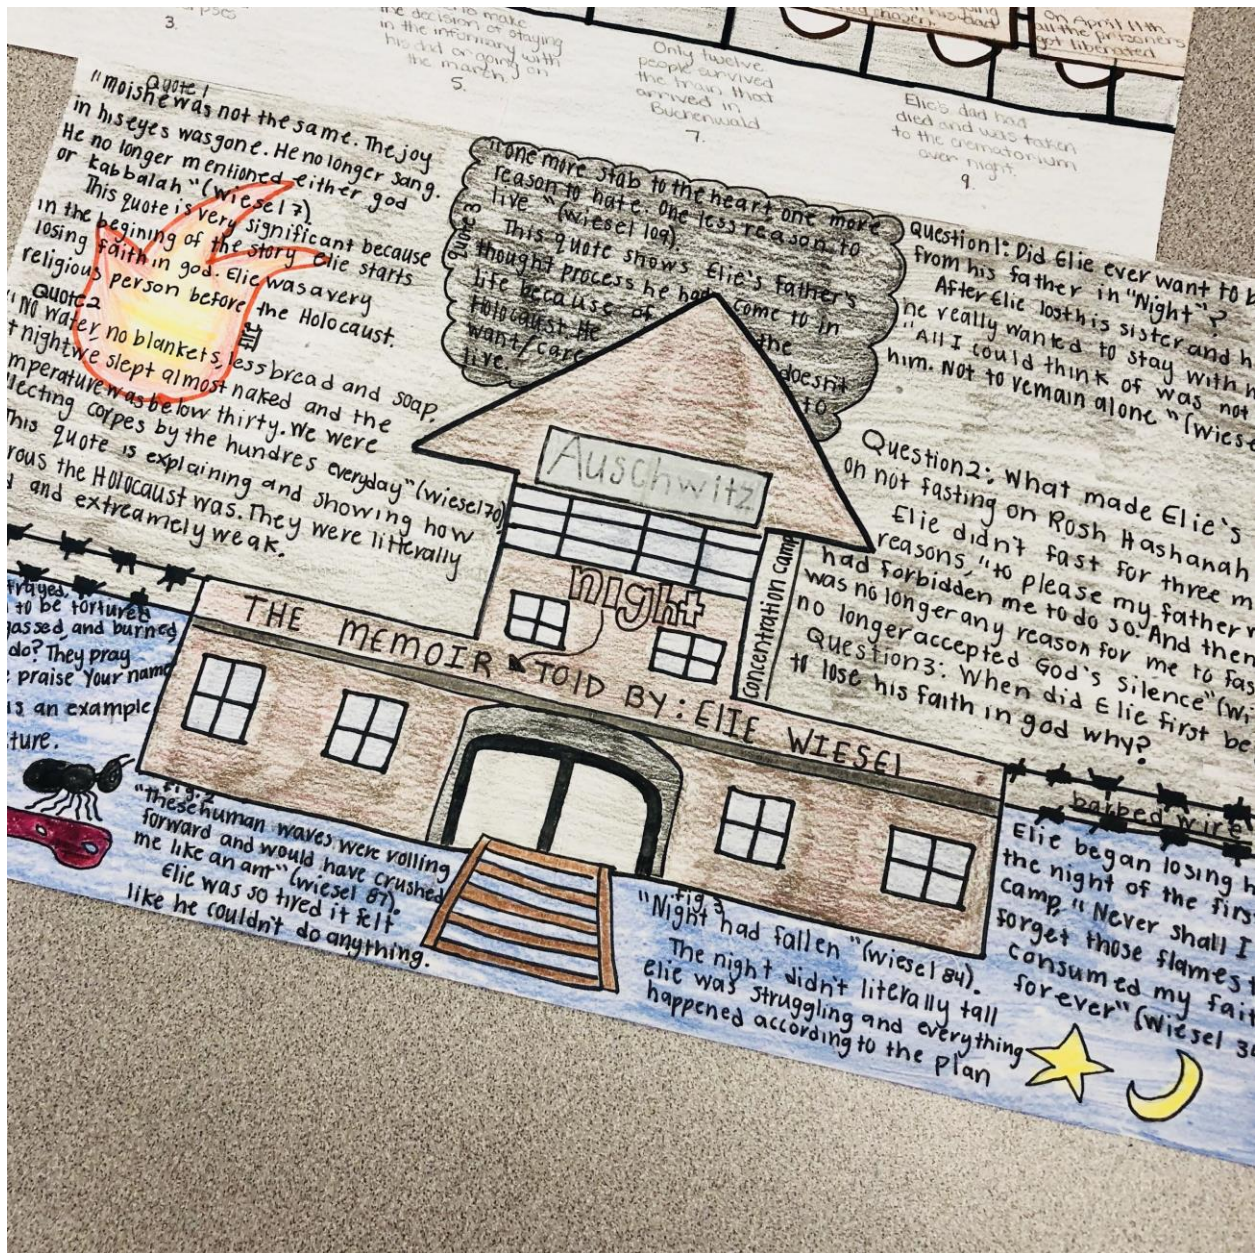 3.
to make
the decision of staying
in the infirmary with
his dad or going on
the march.
5.
Only twelve
people survived
the train that
arrived in
Buchenwald
7.
chosen.
On April 11th
all the prisoners
got liberated
Elie's dad had
died and was taken
to the crematorium
over night.
9.
Quote 1
"moishe was not the same. The joy
in his eyes was gone. He no longer sang.
He no longer mentioned either god
or kabbalah" (wiesel 7)
This quote is very significant because
in the begining of the story elie starts
losing faith in god. Elie was a very
religious person before the Holocaust.
fire
Quote 2
"No water, no blankets, less bread and soap,
night we slept almost naked and the
was below thirty. We were
corpes by the hundres everyday" (wiesel 70)
This quote is explaining and showing how
the Holocaust was. They were litterally
and extreamely weak.
quote 3
"one more stab to the heart one more
reason to hate. One less reason to
live" (wiesel 109).
This quote shows Elie's father's
thought process he had come to in
life because of the
Holocaust. He doesnt
want/care to
live.
Question1: Did Elie ever want to
from his father in "Night"?
After Elie lost his sister and
he really wanted to stay with
"All I could think of was not
him. Not to remain alone"
Question2: What made Elie's
on not fasting on Rosh Hashanah
Elie didn't fast for three
reasons, "to please my father
had forbidden me to do so. And then
was no longer any reason for me to
no longer accepted God's silence"
Question3: When did Elie first
to lose his faith in god why?
Auschwitz
night
concentration camp
THE MEMOIR TOlD BY: ElIE WIESEl
to be tortured
gassed, and burned,
do? They pray
praise Your name
is an example
barbed wire
"These human waves were rolling
forward and would have crushed
me like an ant" (wiesel 87).
Elie was so tired it felt
like he couldn't do anything.
fig. 3
"Night had fallen" (wiesel 84).
The night didn't literally tall
elie was struggling and everything
happened according to the plan
Elie began losing
the night of the first
camp, "Never shall I
forget those flames
consumed my
forever" (Wiesel